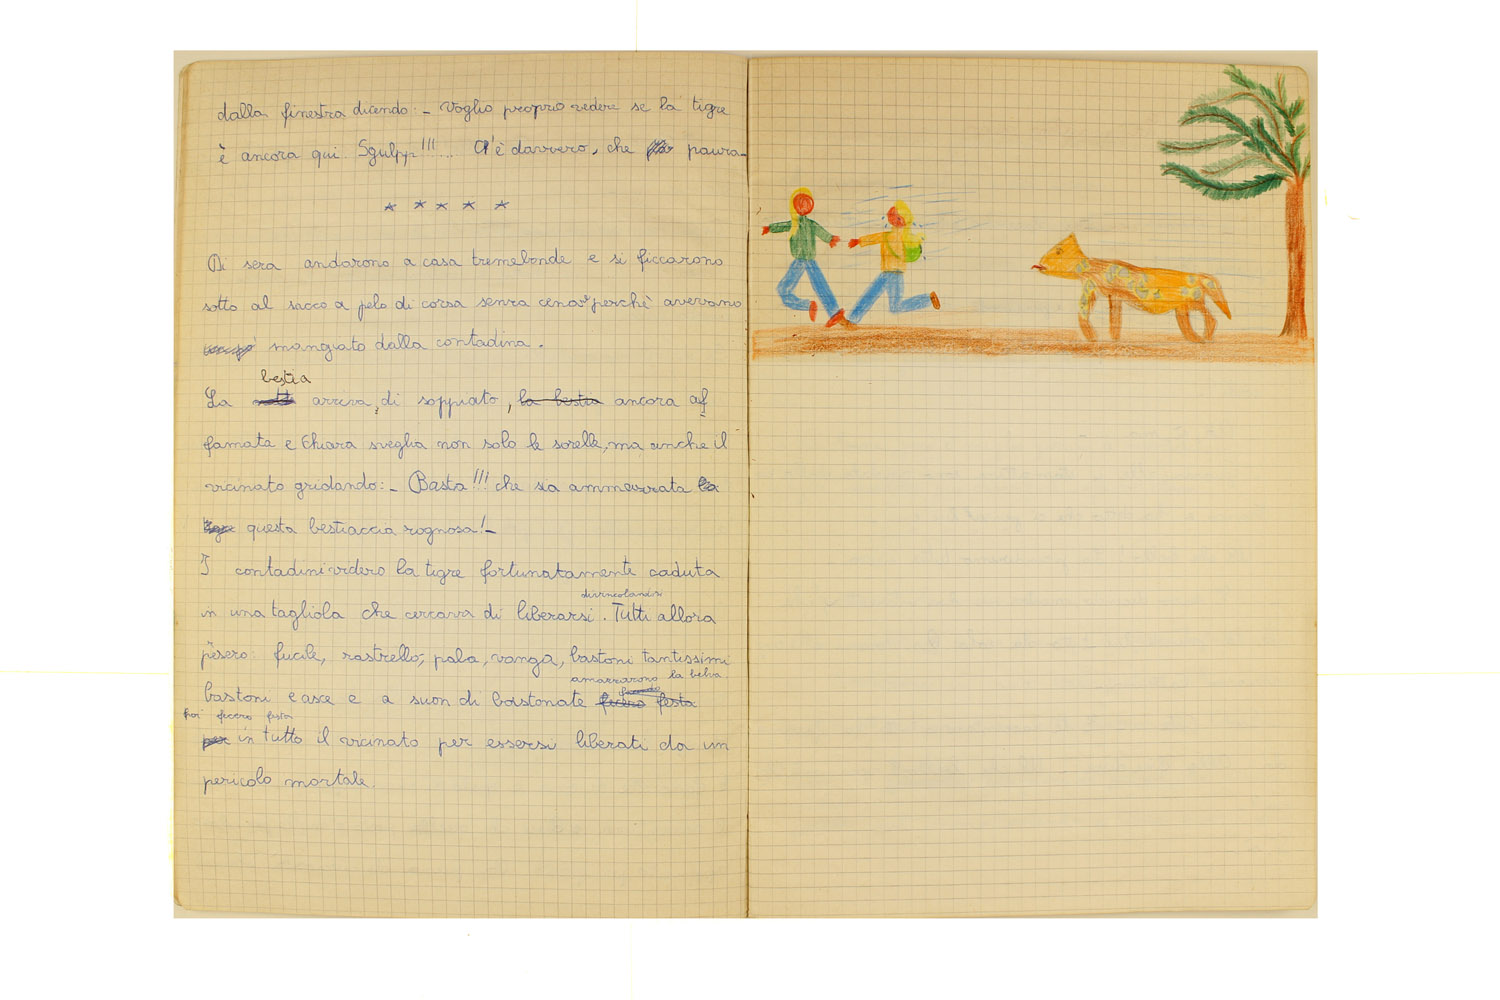 dalla finestra dicendo:- Voglio proprio vedere se la tigre
è ancora qui. Sgulpp!!!... C'è davvero, che paura-
* * * * *
Di sera andarono a casa tremebonde e si ficcarono
sotto al sacco a pelo di corsa senza cena perchè avevano
mangiato dalla contadina.
bestia
La arriva, di soppiato, la bestia ancora af
famata e Chiara sveglia non solo le sorelle, ma anche il
vicinato gridando:- Basta!!! che sia ammazzata la
tigre questa bestiaccia rognosa!-
I contadini videro la tigre fortunatamente caduta
divincolandosi
in una tagliola che cercava di liberarsi. Tutti allora
presero: fucile, rastrello, pala, vanga, bastoni tantissimi
amazzarono la belva
bastoni e asce e a suon di bastonate fecero festa
poi fecero festa
per in tutto il vicinato per essersi liberati da un
pericolo mortale.